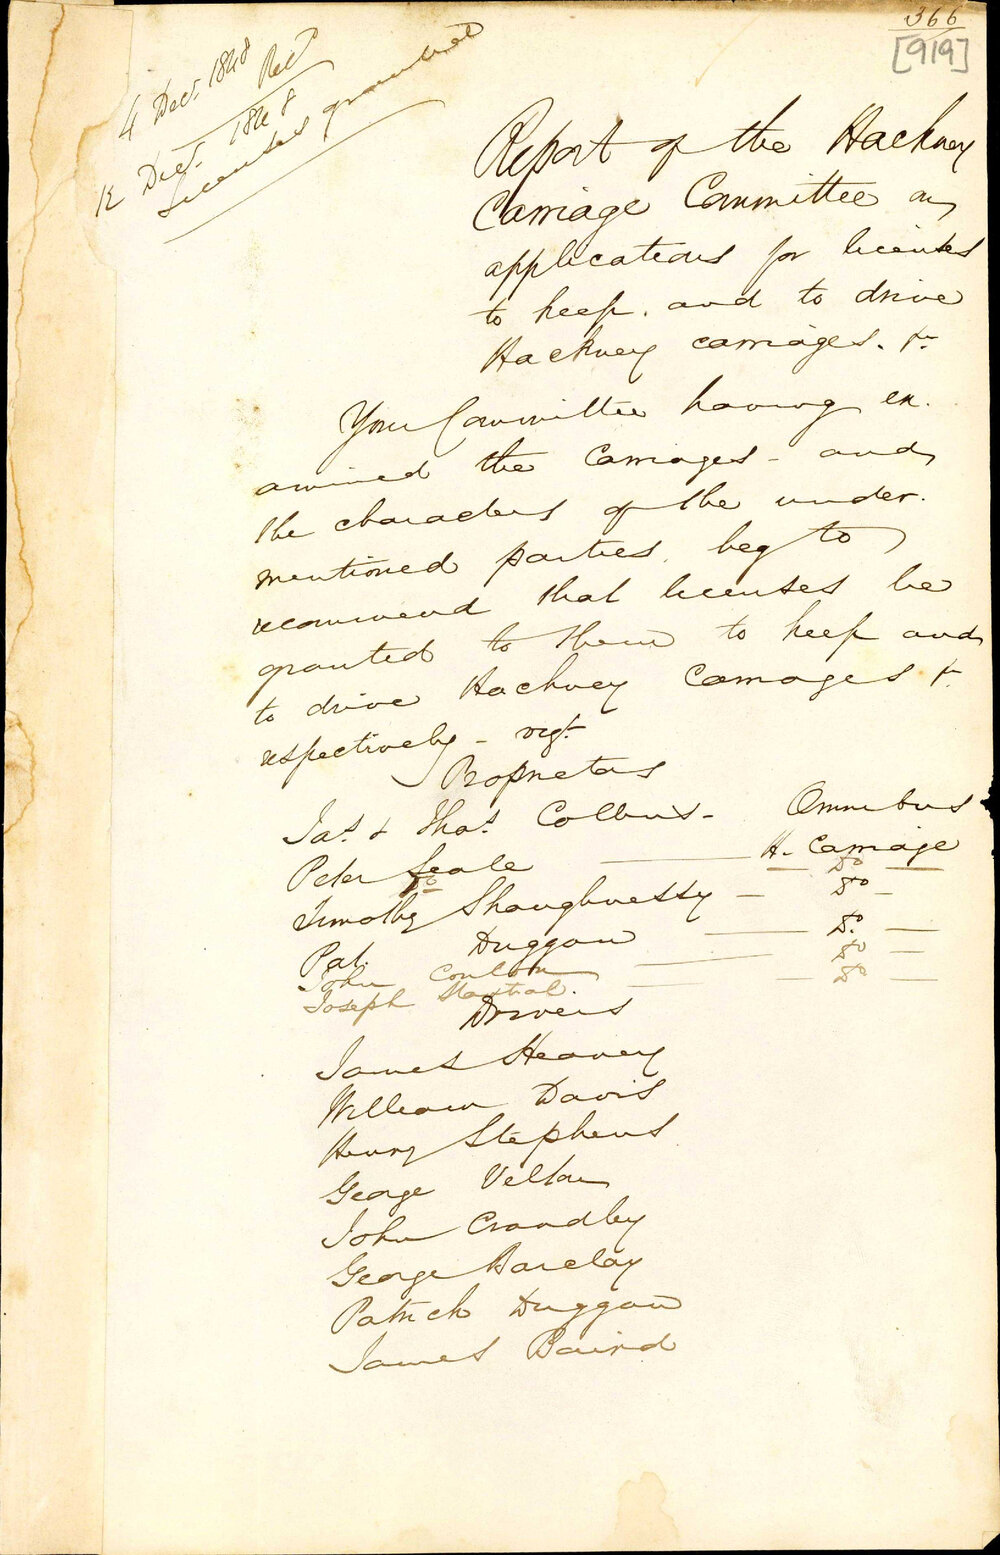 366
[919]
4 Decr. 1848
Recd
12 Decr. 1848
Licenses granted
Report of the Hackney
Carriage Committee on
applications for licenses
to keep, and to drive
Hackney carriages. &c
Your Committee having ex-
amined the Carriages - and
the characters of the under-
mentioned parties, beg to
recommend that licenses be
granted to them to keep and
to drive Hackney Carriages &c
respectively - vizt.
Proprietors
Jas. & Thos. Collins - Omnibus
Peter Seale H. Carriage
Do Do
Timothy Shaughnessy - Do -
Pat. Duggan Do
John Do
Joseph Do
Drivers
James Heaney
William Davis
Henry Stephens
George Velton
John Crandley
George Barclay
Patrick Duggan
James Baird